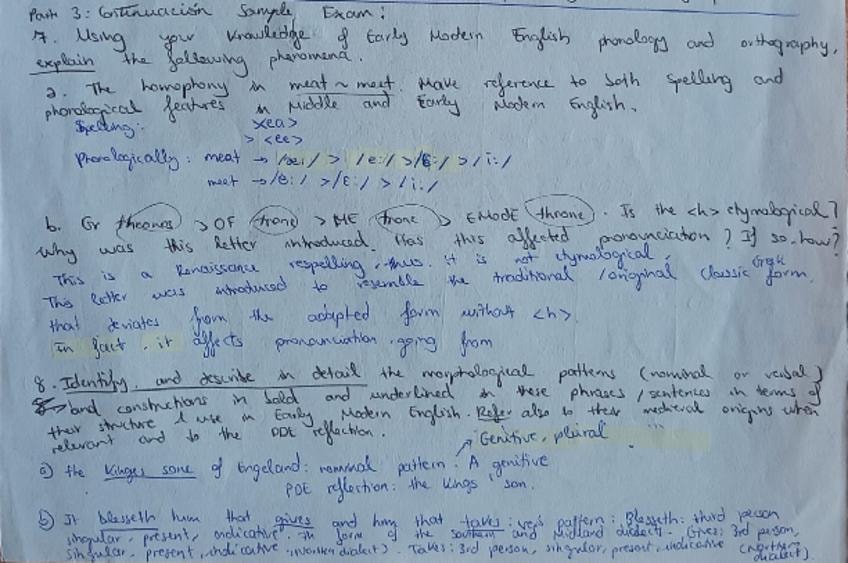 Part 3: Continuación Sample Exam:
7. Using your knowledge of Early Modern English phonology and orthography,
explain the following phenomena.
a. The homophony in meat ~ meet. Make reference to both spelling and
phonological features in Middle and Early Modern English.
Spelling: <ea>
> <ee>
Phonologically: meat → /ɛ:/ > /e:/ > /i:/
meet → /e:/ > /ɛ:/ > /i:/
b. Gr thronos > OF trone > ME trone > EModE throne. Is the <h> etymological?
Why was this letter introduced. Has this affected pronounciation? If so, how?
This is a Renaissance respelling, thus, it is not etymological.
This letter was introduced to resemble the traditional/original classic Greek form.
that deviates from the adopted form without <h>.
In fact, it affects pronounciation going from
8. Identify and describe in detail the morphological patterns (nominal or verbal)
and constructions in bold and underlined in these phrases/sentences in terms of
their structure / use in Early Modern English. Refer also to their medieval origins when
relevant and to the PDE reflection.
Genitive, plural
a) the Kinges sone of Engeland: nominal pattern. A genitive
PDE reflection: the Kings' son.
b) It blesseth hum that gives and hym that takes: verb pattern: Blesseth: third person
singular, present, indicative in form of the southern and Midland dialects. Gives: 3rd person,
singular, present, indicative (northern dialect). Takes: 3rd person, singular, present, indicative (northern
dialect).